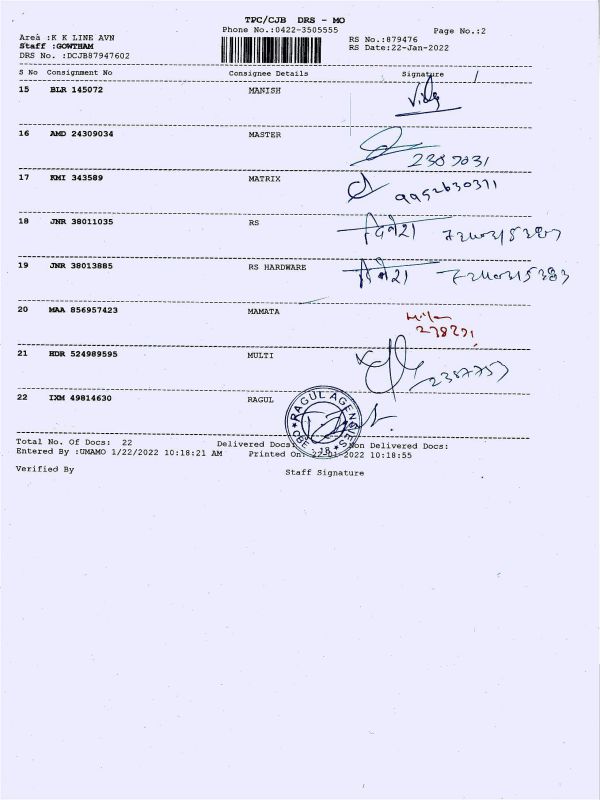 TPC/CJB DRS - MO
Phone No.:0422-3505555 Page No.:2
Area :K K LINE AVN RS No.:879476
Staff :GOWTHAM RS Date:22-Jan-2022
DRS No. :DCJB87947602
S No Consignment No Consignee Details Signature
15 BLR 145072 MANISH
16 AMD 24309034 MASTER
17 KMI 343589 MATRIX
9952630371
18 JNR 38011035 RS
19 JNR 38013885 RS HARDWARE
20 MAA 856957423 MAMATA
21 HDR 524989595 MULTI
2387757
22 IXM 49814630 RAGUL
RAGUL AGENCIES
CBE - 18
Total No. Of Docs: 22 Delivered Docs: Non Delivered Docs:
Entered By :UMAMO 1/22/2022 10:18:21 AM Printed On: 22-01-2022 10:18:55
Verified By Staff Signature